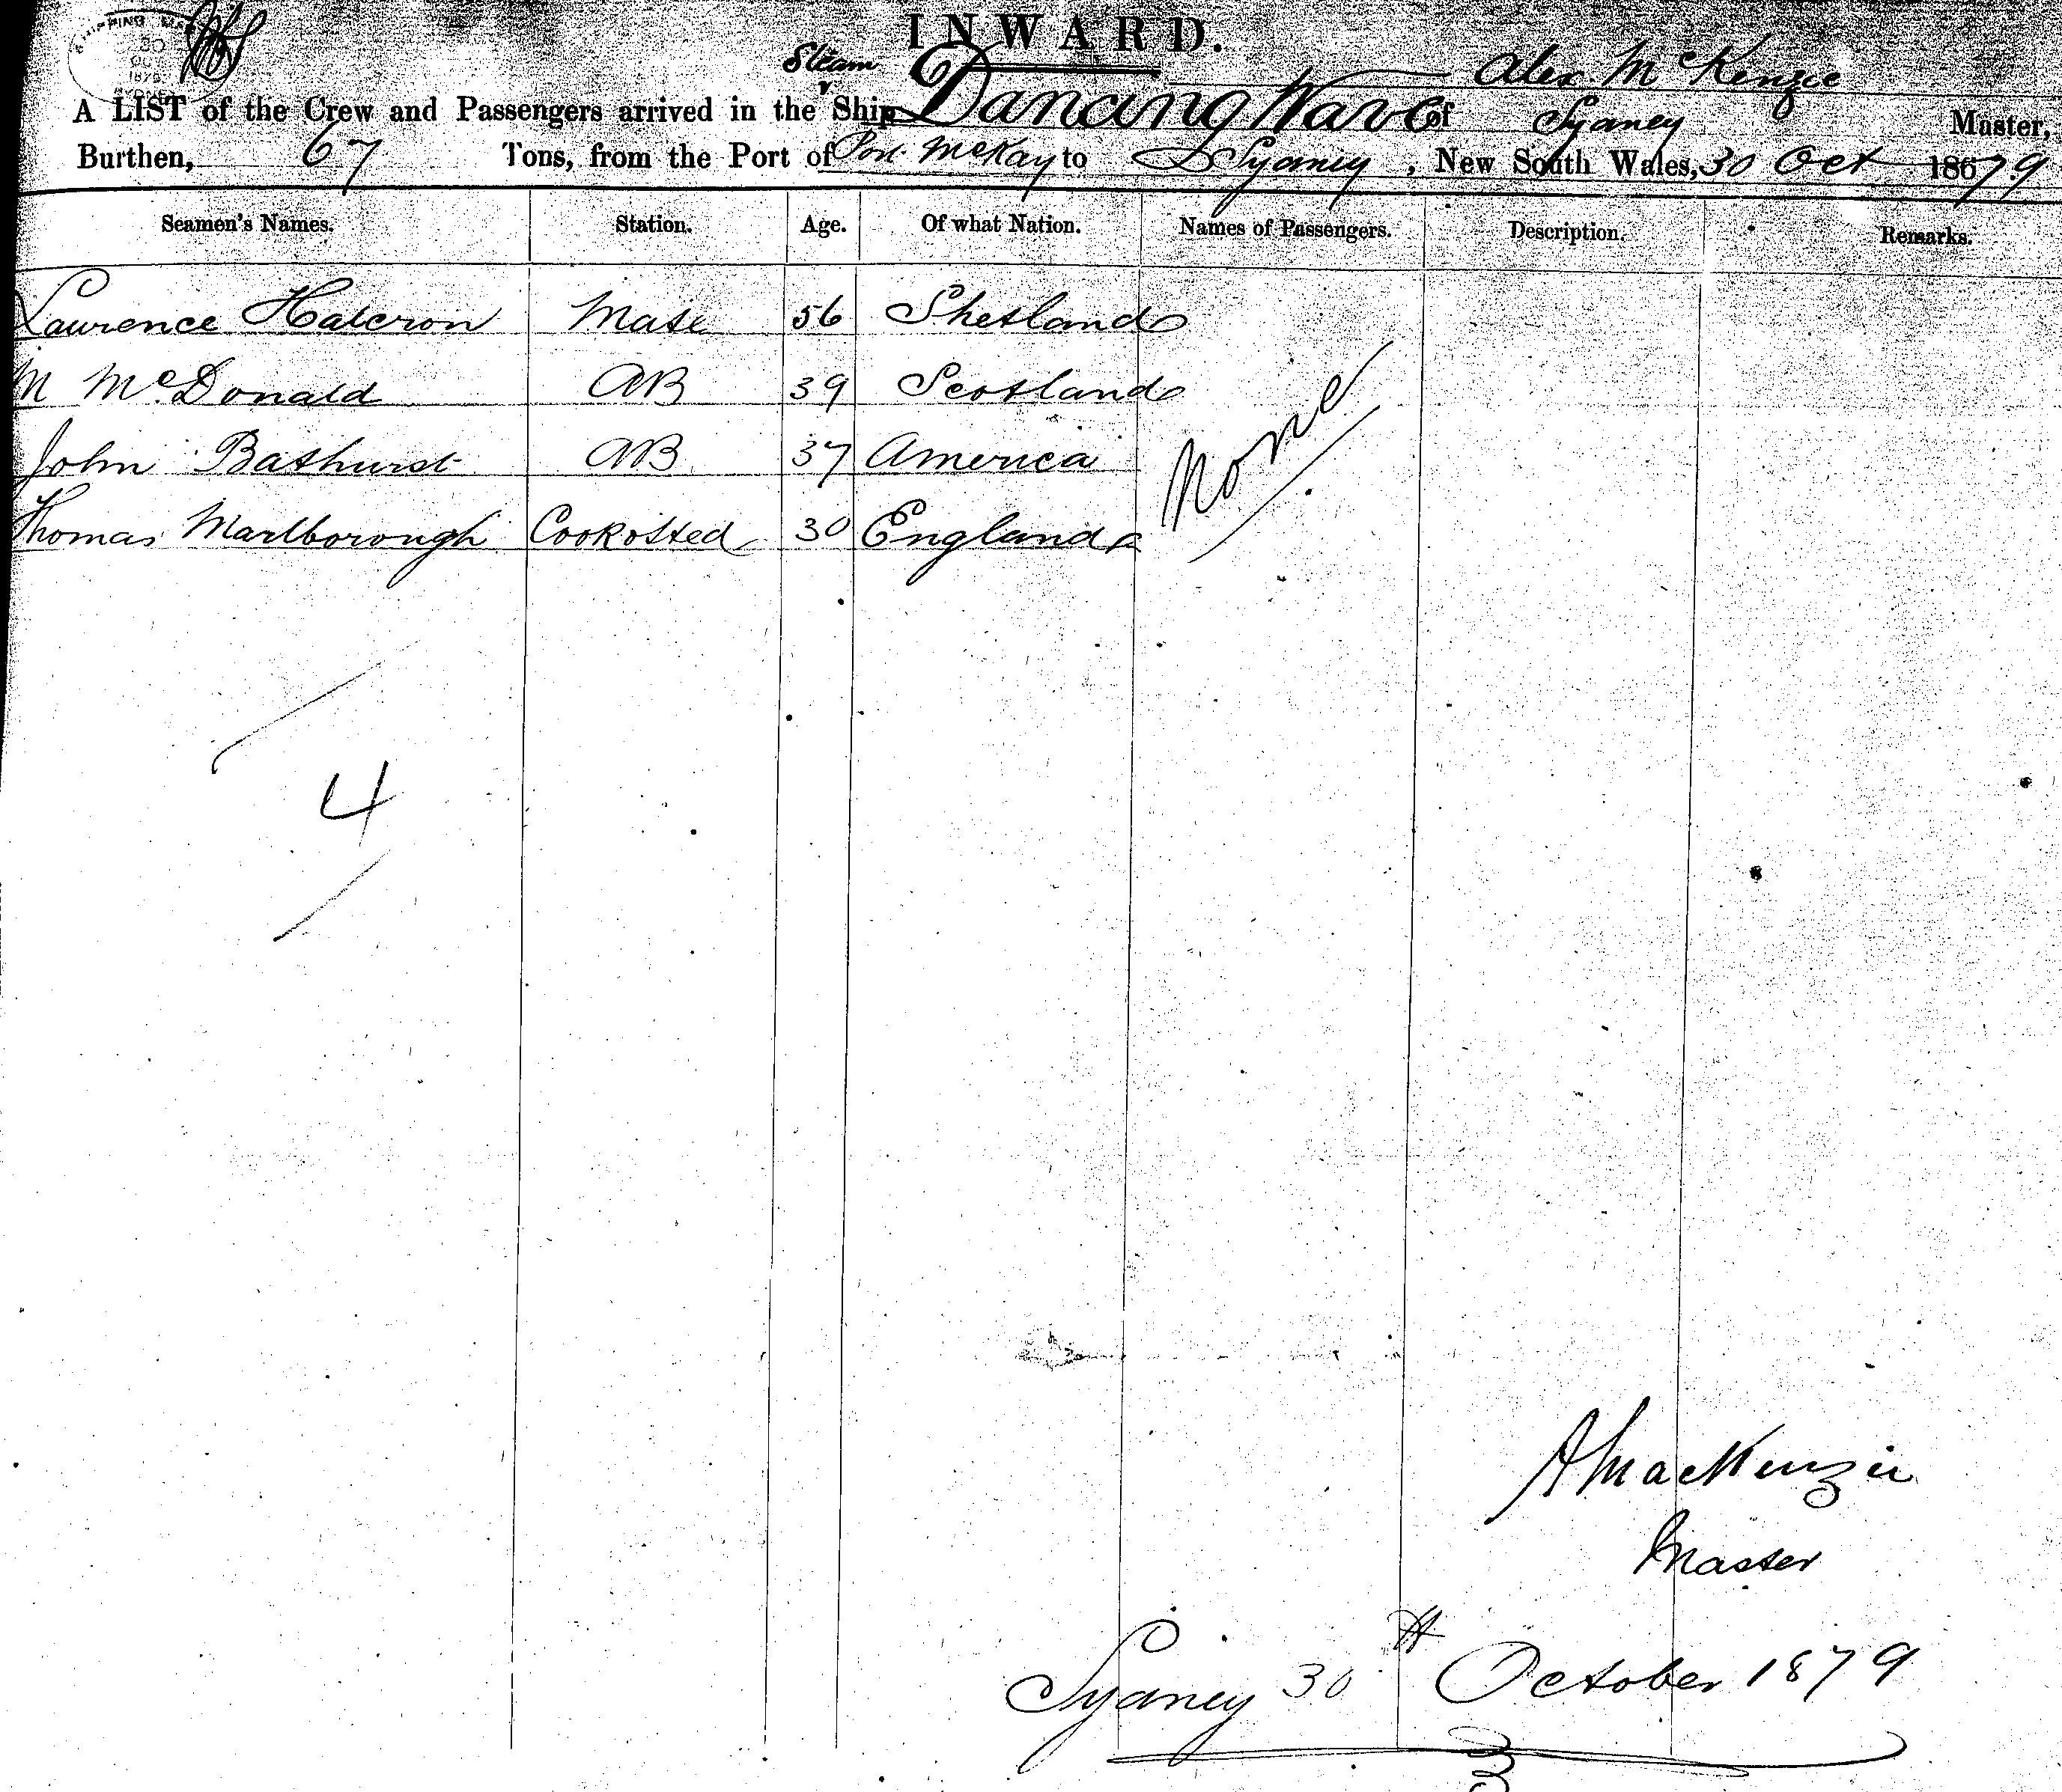 SHIPPING MA
30
OC
1879
SYDNEY
INWARD.
Steam
Alex McKenzie
A LIST of the Crew and Passengers arrived in the Ship Dancing Wave of Sydney Master,
Burthen, 67 Tons, from the Port of Port McKay to Sydney, New South Wales, 30 Oct 1879
Seamen's Names. Station. Age. Of what Nation. Names of Passengers. Description. Remarks.
Laurence Halcron Mate 56 Shetland
M McDonald AB 39 Scotland
John Bathurst AB 37 America
Thomas Marlborough Cook & Sted 30 England
None
4
A MacKenzie
Master
Sydney 30th October 1879